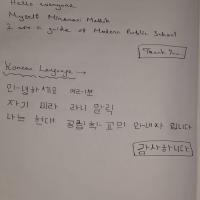 Hello everyone
Myself Minarani Mallik
I am a guide of Modern Public School
Thank You
Korean Language →
안녕하세요 여러분
자기 미라 라니 말릭
나는 현대 공립 학교의 안내자 입니다
감사합니다